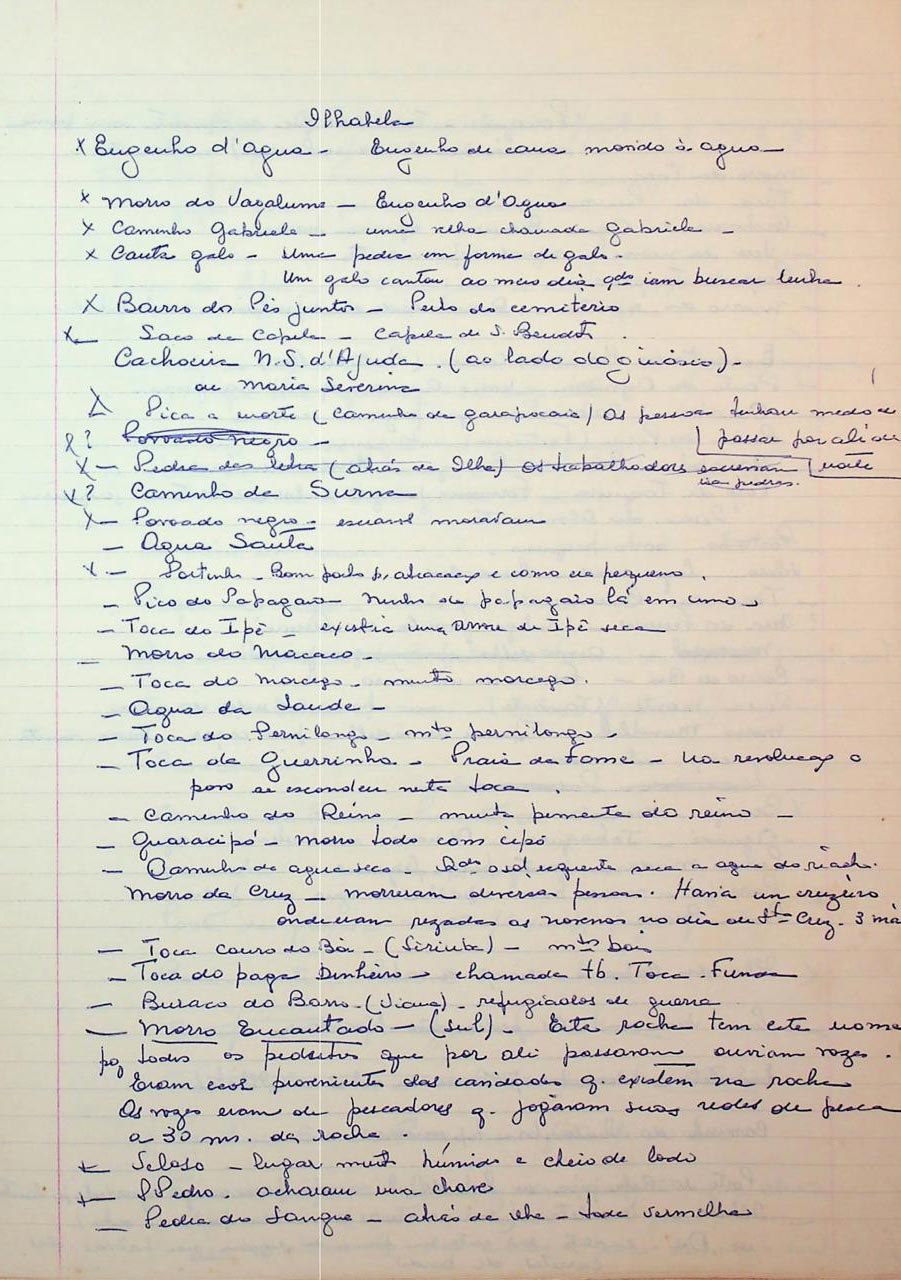 Ilhabela
x Engenho d'Agua - Engenho de cana movido à agua -
x Morro do Vagalume - Engenho d'Agua
x Caminho Gabriela - uma velha chamada Gabriela -
x Canta galo - Uma pedra em forme de galo.
Um galo cantou ao meio dia qdo iam buscar lenha
X Bairro dos Pés juntos - Perto do cemiterio
x Saco da Capela - Capela de S. Benedito.
Cachoeira N.S. d'Ajuda. (ao lado do ginásio) -
ou Maria Severina
Pica a morte (Caminho de garapocaia) Os pessoa tinham medo de
x? Povoado negro - passar por ali de
x - Pedra das letra (atrás da Ilha) Os trabalhadores escreviam noite
nas pedras.
x? Caminho da Surna
x - Povoado negro - escravos moravam
- Agua Santa
x - Portinho - Bom porto p. atracação e como era pequeno.
- Pico do Papagaio - Ninho de papagaio lá em cima
- Toca do Ipê - existia uma arvore de Ipê seca
- Morro do Macaco -
- Toca do Morcego - muito morcego.
- Agua da Saude -
- Toca do Pernilongo - mto pernilongo.
- Toca da Guerrinha - Praia da Fome - na revolucão o
povo se escondeu nesta toca.
- Caminho do Reino - muita pimenta do reino -
- Guaracipó - morro todo com cipó
- Caminho da agua seca - Qdo o sol esquenta seca a agua do riacho.
Morro da Cruz - morreram diversas pessoas. Havia un cruzeiro
onde eram rezadas as novenas no dia de Sta Cruz. 3 mai
- Toca couro do Boi - (Siriuba) - mtos bois
- Toca do paga Dinheiro - chamada tb. Toca Funda
- Buraco do Barro - (Viana) - refugiados de guerra
- Morro Encantado - (sul) - Esta rocha tem este nome
pq todos os pedestres que por ali passavam ouviam vozes.
Eram ecos provenientes das cavidades q. existem na rocha
As vozes eram de pescadores q. jogavam suas redes de pesca
a 30 ms. da rocha.
x Seloso - lugar muito húmido e cheio de lodo
x S. Pedro. acharam uma chave
- Pedra do Sangue - atrás da ilha - toda vermelha